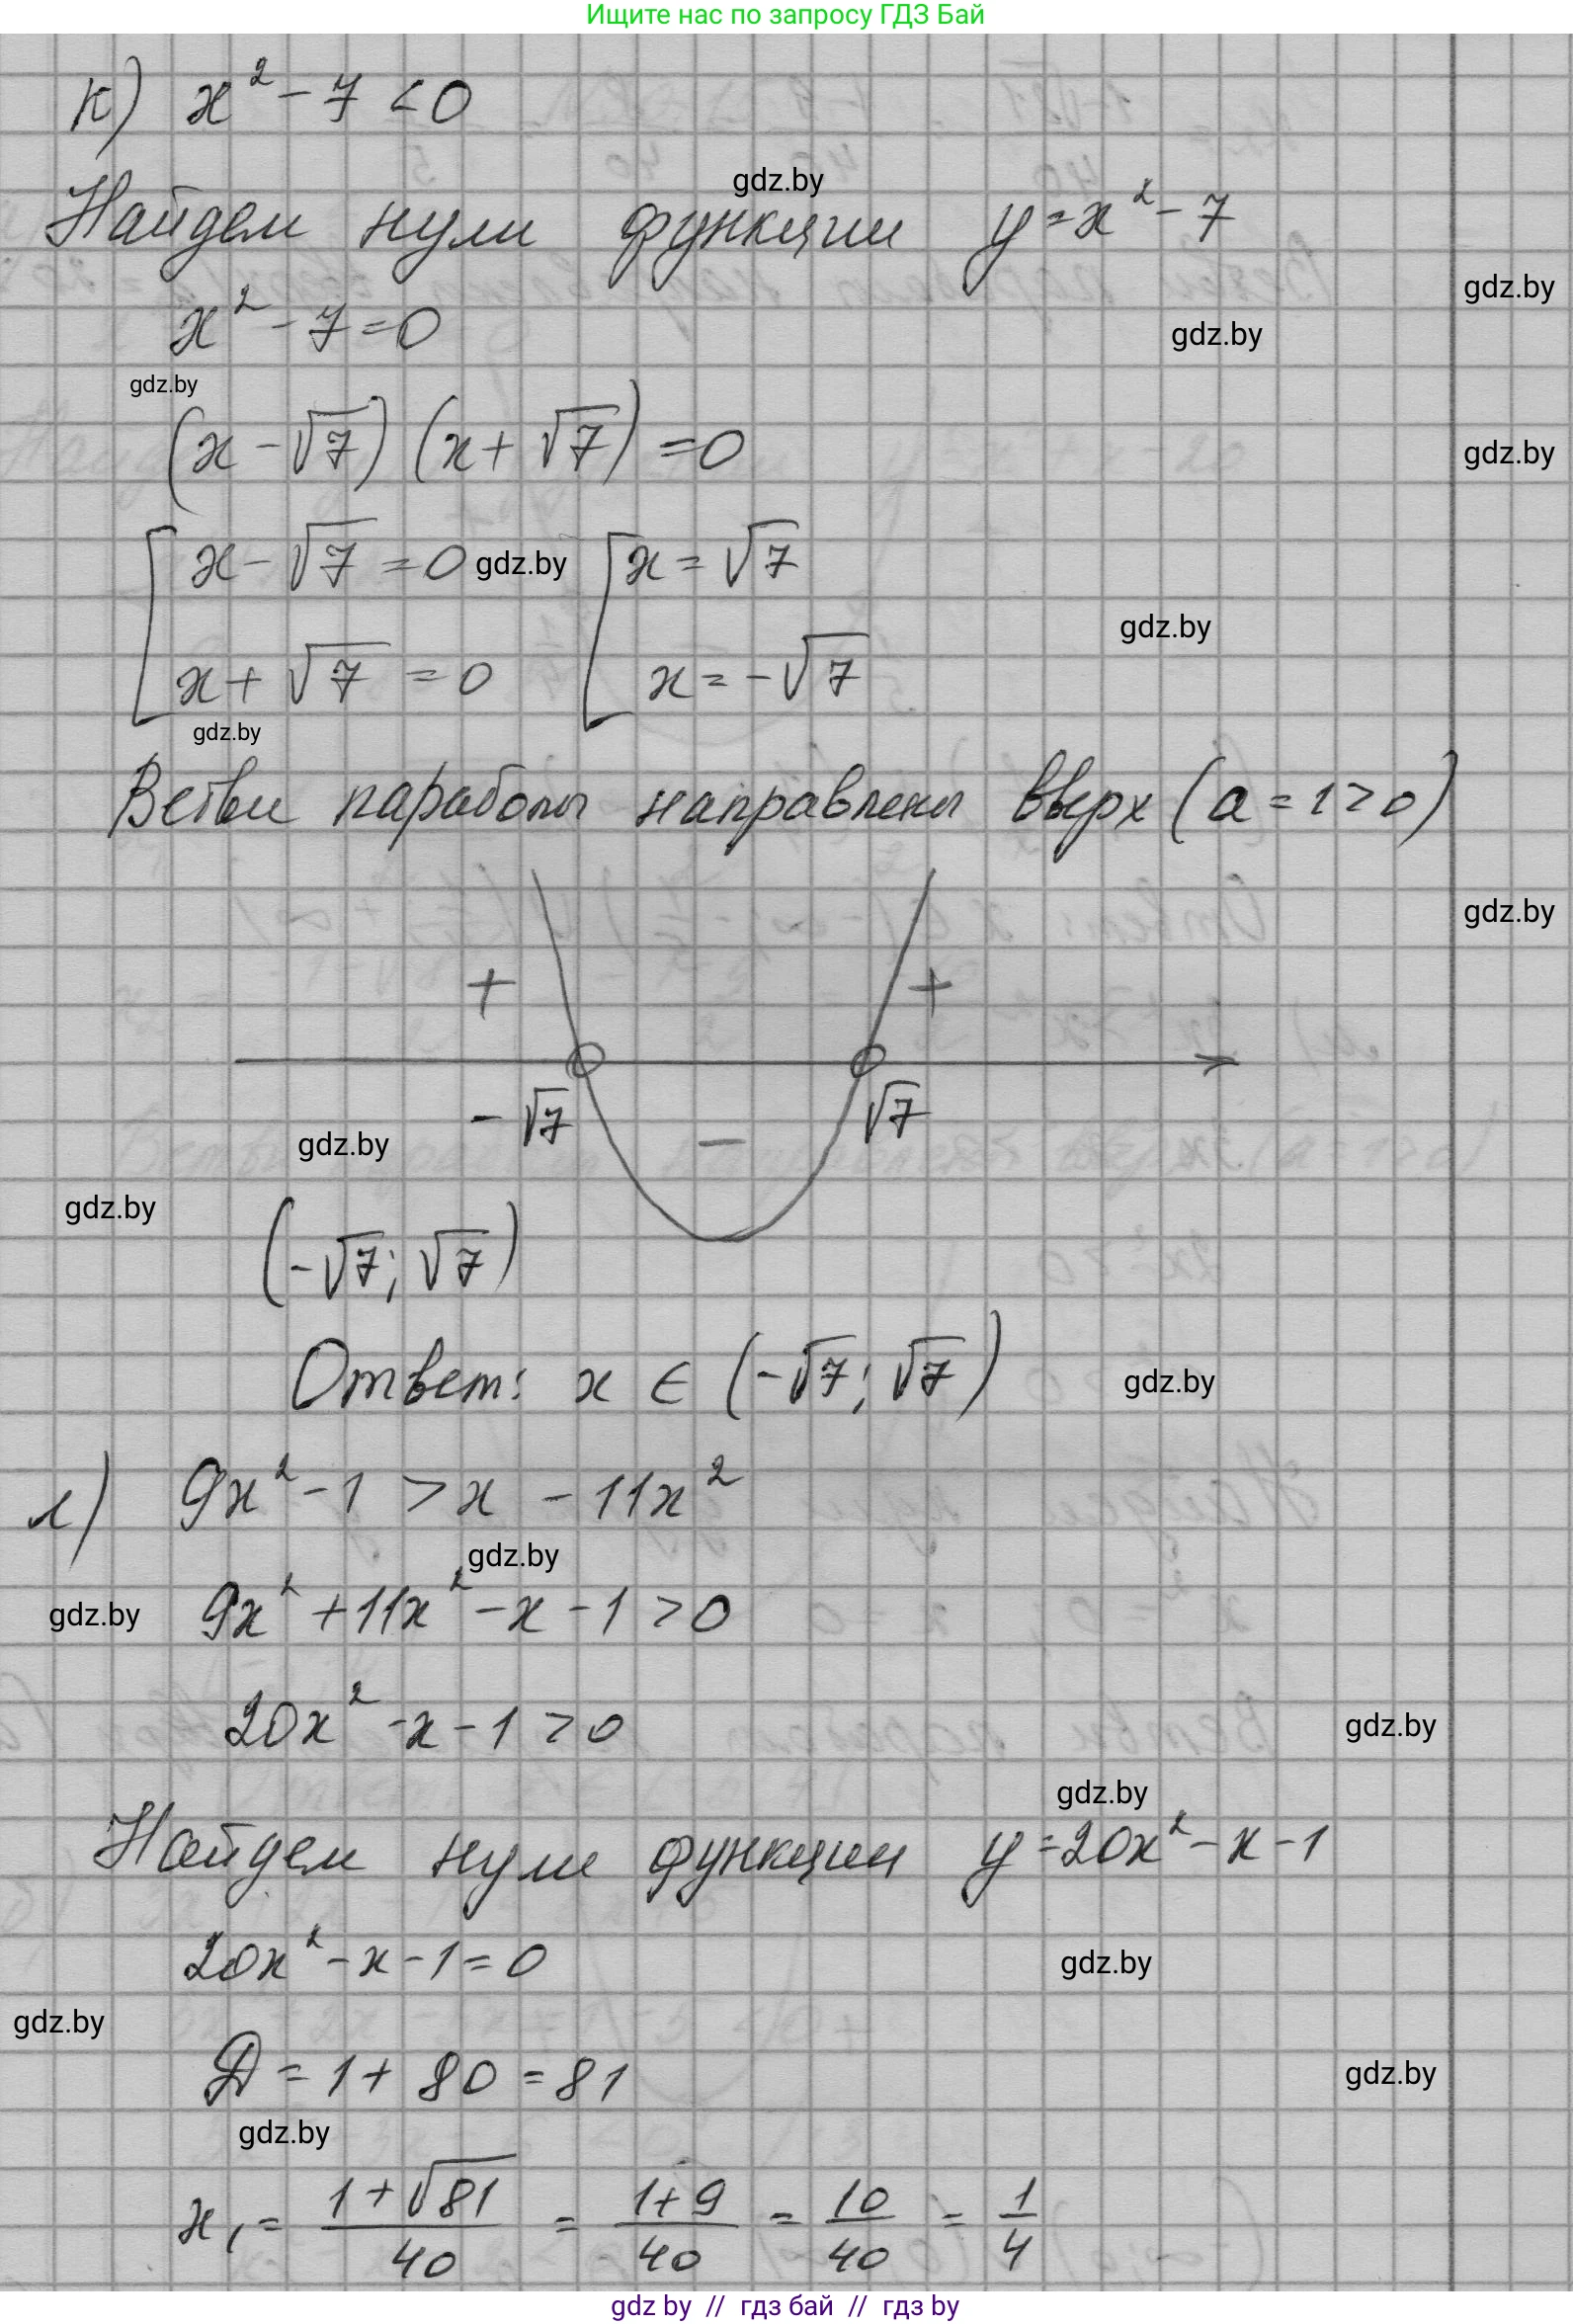 Ищите нас по запросу ГДЗ Бай
к) x² - 7 < 0
gdz.by
Найдем нули функции y = x² - 7
gdz.by
x² - 7 = 0
gdz.by
gdz.by
(x - √7) (x + √7) = 0
gdz.by
x - √7 = 0 gdz.by x = √7
gdz.by
x + √7 = 0 x = -√7
gdz.by
Ветви параболы направлены вверх (a = 1 > 0)
gdz.by
+ +
-√7 - √7
gdz.by
gdz.by
(-√7; √7)
Ответ: x ∈ (-√7; √7)
gdz.by
л) 9x² - 1 > x - 11x²
gdz.by
gdz.by 9x² + 11x² - x - 1 > 0
20x² - x - 1 > 0
gdz.by
gdz.by
Найдем нули функции y = 20x² - x - 1
20x² - x - 1 = 0
gdz.by
gdz.by
D = 1 + 80 = 81
gdz.by
gdz.by
x₁ = (1 + √81)/40 = (1 + 9)/40 = 10/40 = 1/4
gdz by // гдз бай // гдз by